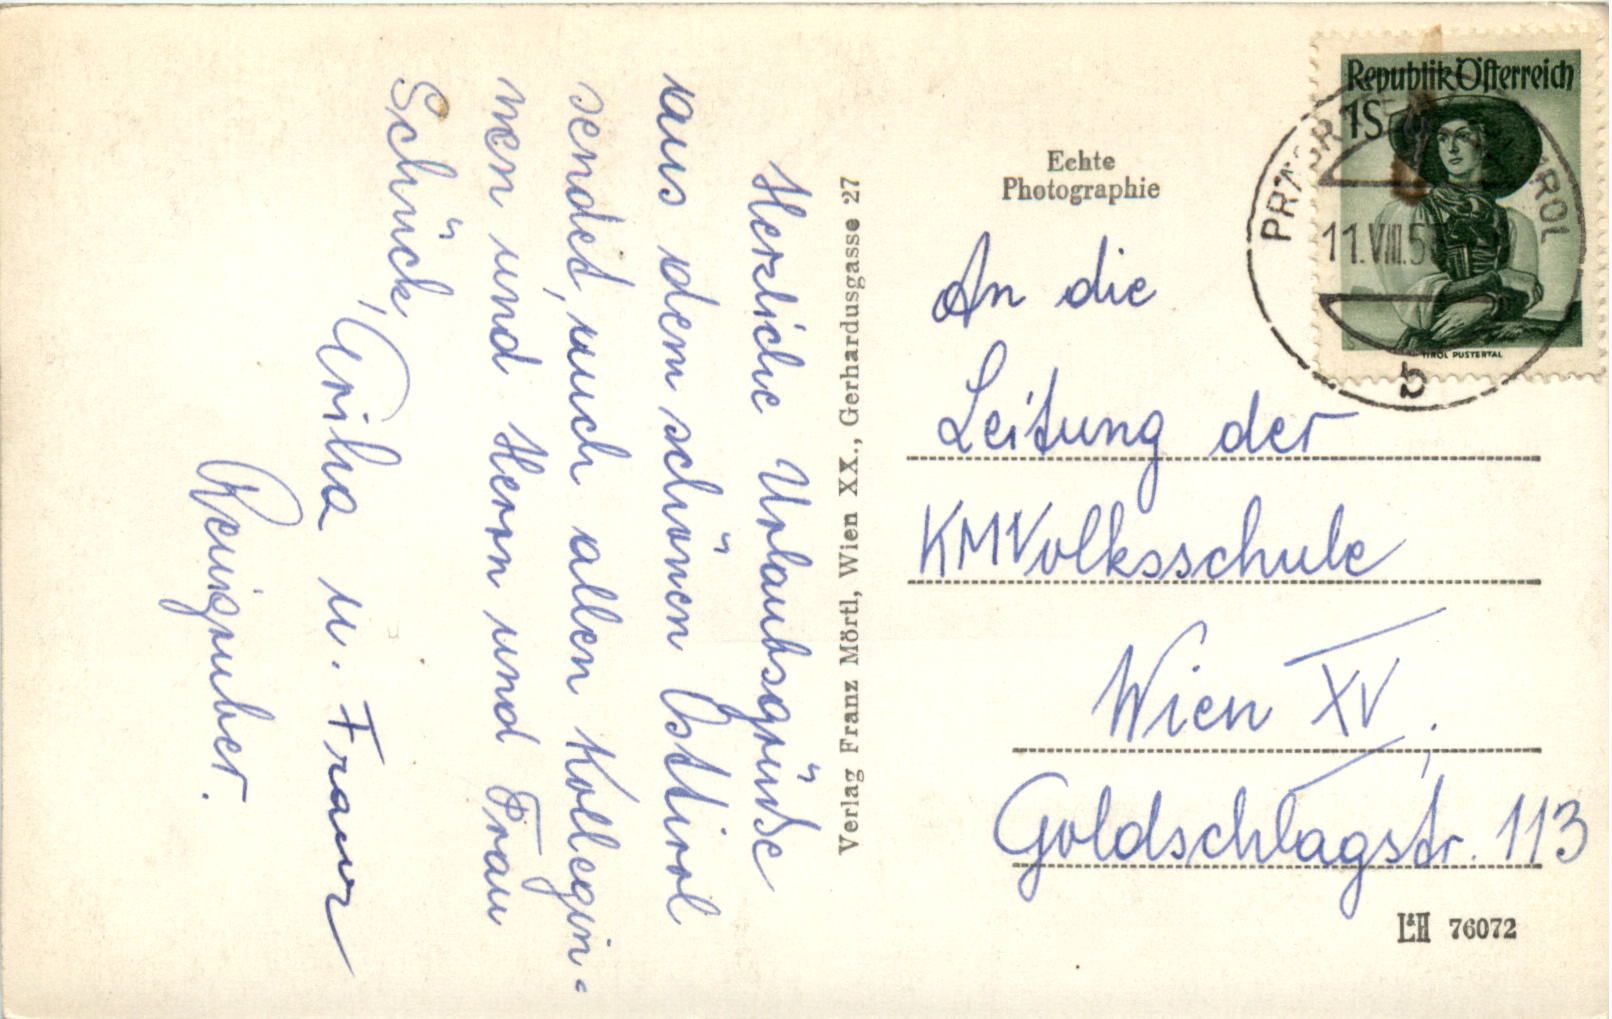 Herzliche Urlaubsgrüße
aus dem schönen Osttirol
sendet, auch allen Kollegin-
nen und Herrn und Frau
Schück,
u. Franz
Reingruber.
Verlag Franz Mörtl, Wien XX., Gerhardusgasse 27
Echte
Photographie
Republik Österreich
1S
11.VIII.5
TIROL PUSTERTAL
b
An die
Leitung der
KMVolksschule
Wien XV.,
Goldschlagstr. 113
L&H 76072